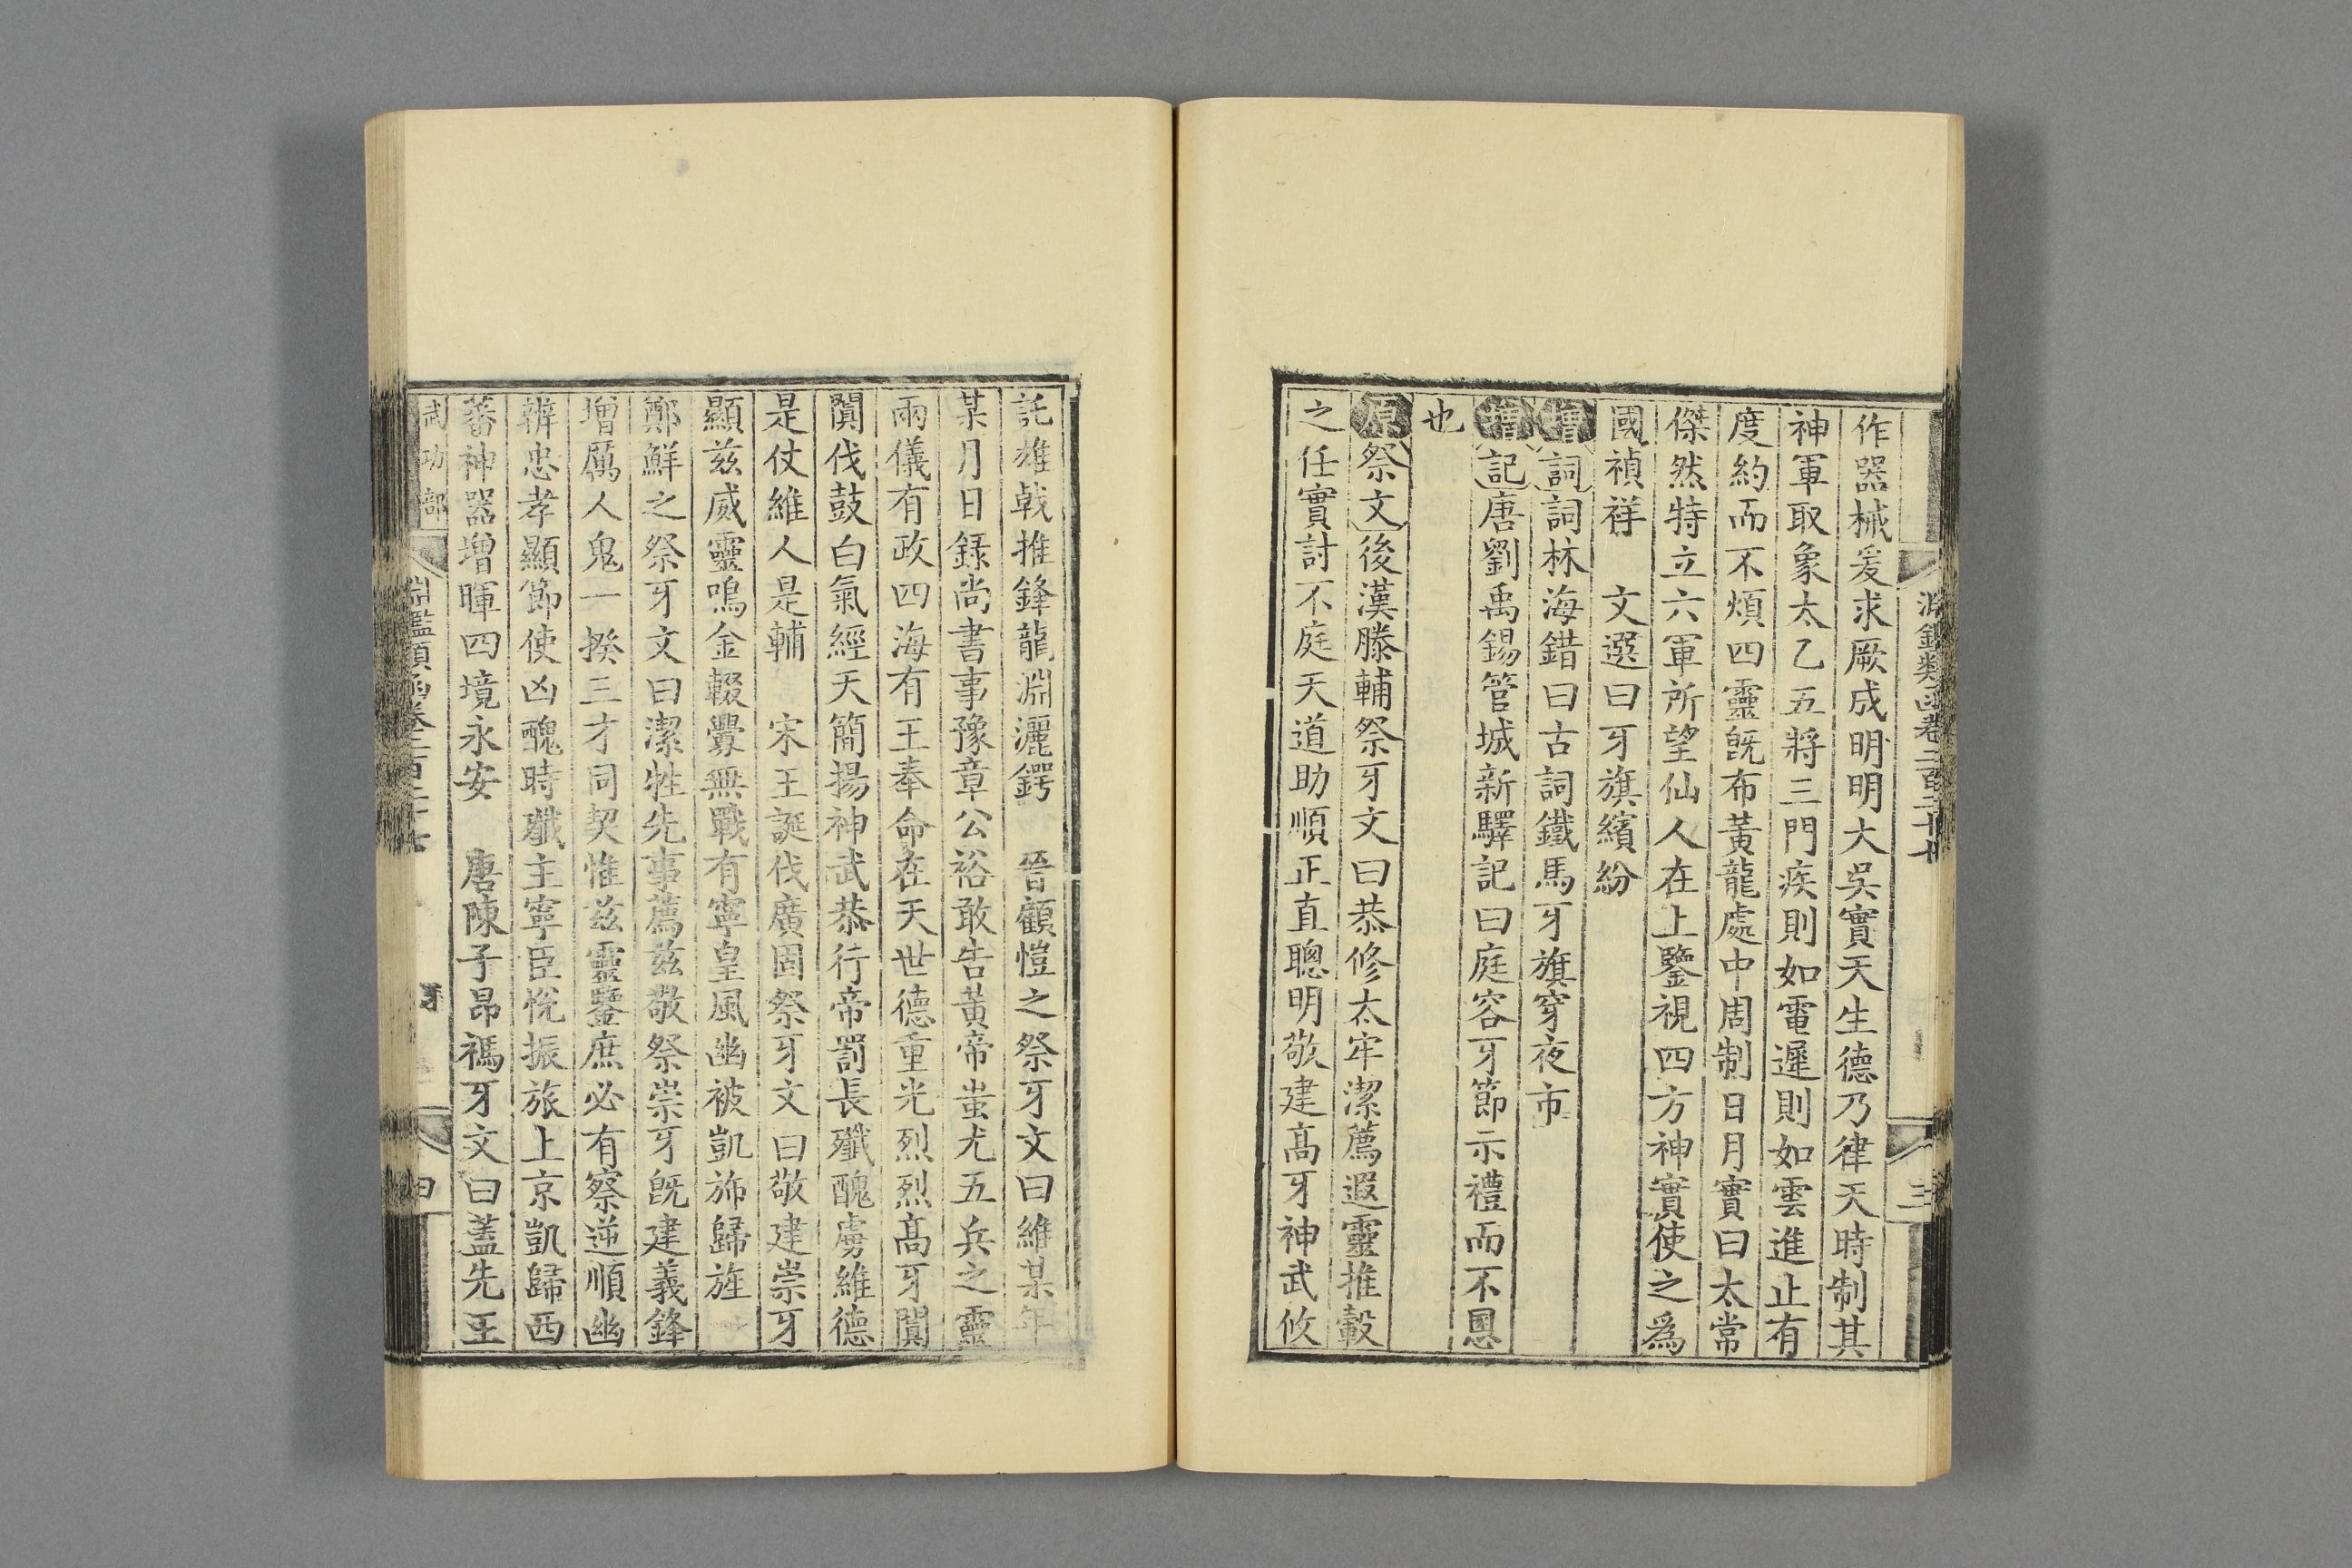 淵鑑類函卷二百二十七
三
作器械爰求厥成明明大吳實天生德乃律天時制其
神軍取象太乙五將三門疾則如電遲則如雲進止有
度約而不煩四靈旣布黃龍處中周制日月實曰太常
傑然特立六軍所望仙人在上鑒視四方神實使之爲
國禎祥　文選曰牙旗繽紛
增詞詞林海錯曰古詞鐵馬牙旗穿夜市
增記唐劉禹錫管城新驛記曰庭容牙節示禮而不恩
也
原祭文後漢滕輔祭牙文曰恭修太牢潔薦遐靈推轂
之任實討不庭天道助順正直聰明敬建高牙神武攸
託雄戟推鋒龍淵灑鍔　晉顧愷之祭牙文曰維某年
某月日錄尚書事豫章公裕敢告黃帝蚩尤五兵之靈
兩儀有政四海有王奉命在天世德重光烈烈高牙闐
闐伐鼓白氣經天簡揚神武恭行帝罰長殲醜虜維德
是仗維人是輔　宋王誕伐廣固祭牙文曰敬建崇牙
顯兹威靈鳴金輟釁無戰有寧皇風幽被凱旆歸旌
鄭鮮之祭牙文曰潔牲先事薦兹敬祭崇牙旣建義鋒
增厲人鬼一揆三才同契惟兹靈鑒庶必有察逆順幽
辨忠孝顯節使凶醜時殲主寧臣悅振旅上京凱歸西
蕃神器增暉四境永安　唐陳子昂禡牙文曰蓋先王
武功部
淵鑑類函卷二百二十七
牙
四